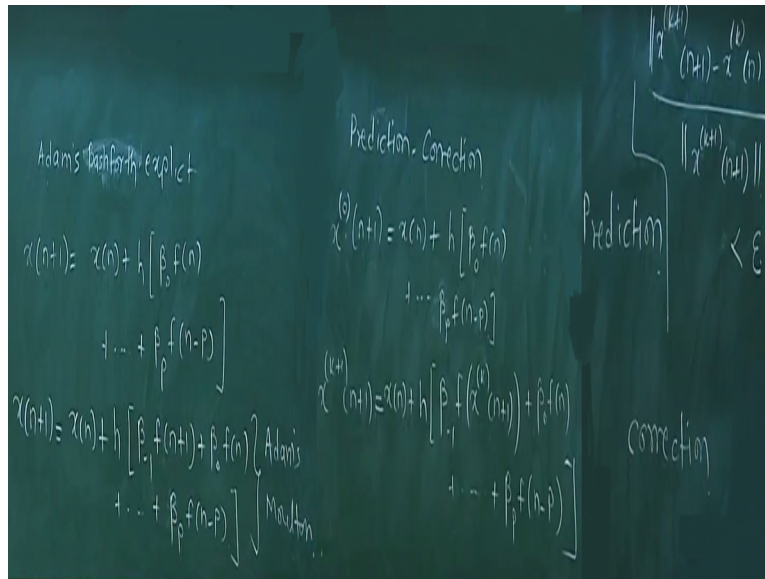 Adam's Bashforth explict
x(n+1) = x(n) + h[β₀f(n)
+ ... + βₚf(n-p)]
x(n+1) = x(n) + h[β₋₁f(n+1) + β₀f(n)
+ ... + βₚf(n-p)]
} Adam's
Moulton
Prediction - Correction
x⁽⁰⁾(n+1) = x(n) + h[β₀f(n)
+ ... βₚf(n-p)]
x⁽ᵏ⁺¹⁾(n+1) = x(n) + h[β₋₁f(x⁽ᵏ⁾(n+1)) + β₀f(n)
+ ... + βₚf(n-p)]
||x⁽ᵏ⁺¹⁾(n+1) - x⁽ᵏ⁾(n)
||x⁽ᵏ⁺¹⁾(n+1)||
< ε
Prediction
correction